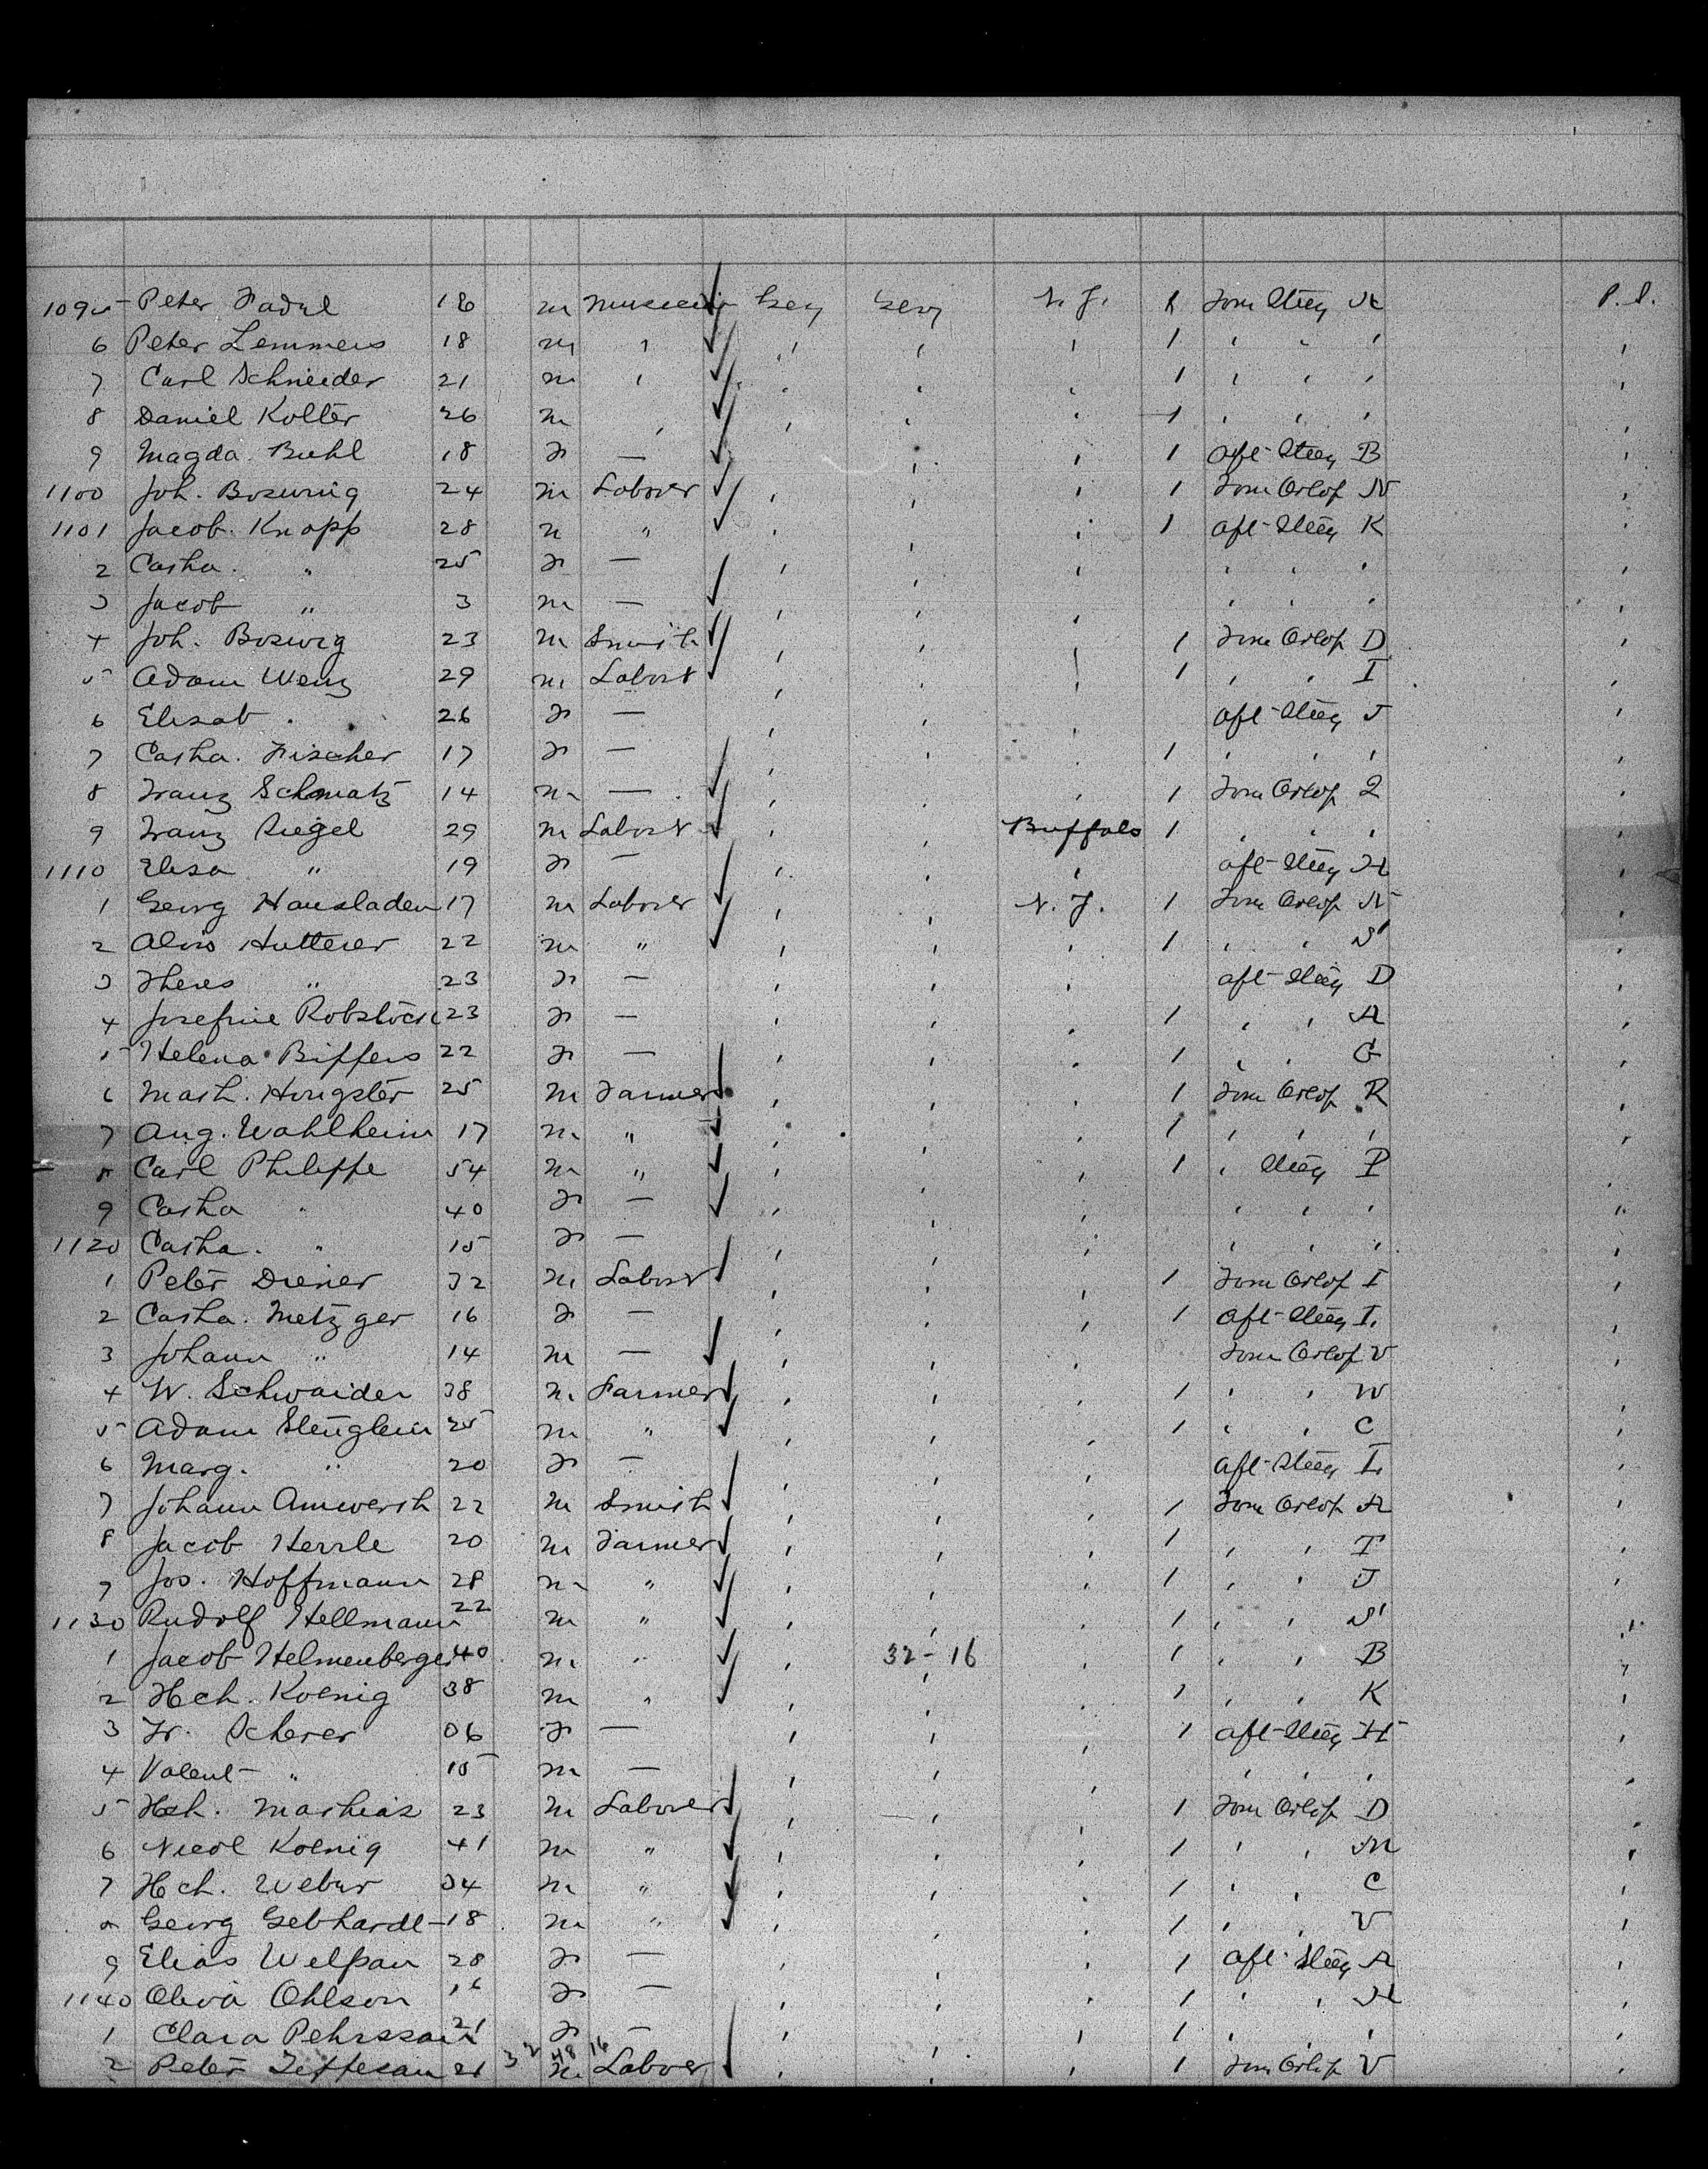 1095 Peter Fadul 18 m Musician Gey Gery N.Y. 1 Forw Steeg H P.S.
6 Peter Lemmers 18 m " 1
7 Carl Schneider 21 m " 1
8 Daniel Kolter 26 m " 1
9 Magda. Buhl 18 F — 1 Aft-Steeg B
1100 Joh. 24 m Laborer 1 Forw Orlop N
1101 Jacob Knapp 28 m " 1 Aft-Steeg K
2 Catha. " 25 F —
3 Jacob " 3 m —
4 Joh. 23 m Smith 1 Forw Orlop D
5 Adam Wenz 29 m Labort 1 " " I
6 Elisab " 26 F — Aft-Steeg J
7 Catha. Fischer 17 F — 1
8 Franz Schmatz 14 m — 1 Forw Orlop 2
9 Franz Riegel 29 m Labort Buffalo 1
1110 Elisa " 19 F — Aft-Steeg H
1 Georg Hausladen 17 m Laborer N.Y. 1 Forw Orlop N
2 Alois Hutterer 22 m " 1 " " S
3 Theres " 23 F — Aft-Steeg D
4 Josefine 23 F — 1 " " A
5 Helena Biffers 22 F — 1 " " G
6 Math. Hongster 25 m Farmer 1 Forw Orlop R
7 Aug. Wahlheim 17 m " 1
8 Carl Philippe 54 m " 1 " Steeg P
9 Catha " 40 F —
1120 Catha. " 15 F —
1 Peter Diener 32 m Labort 1 Forw Orlop I
2 Catha. Metzger 16 F — 1 Aft-Steeg I.
3 Johann " 14 m — Forw Orlop V
4 W. Schwaider 38 m Farmer 1 " " W
5 Adam Stenglein 25 m " 1 " " C
6 Marg. " 20 F — Aft-Steeg I.
7 Johann Amwerth 22 m Smith 1 Forw Orlop A
8 Jacob Herrle 20 m Farmer 1 " " T
9 Jos. Hoffmann 28 m " 1 " " J
1130 Rudolf Hellmann 22 m " 1 " " S
1 Jacob Helmenberger 40 m " 32-16 1 " " B
2 Hch. Koenig 38 m " 1 " " K
3 Fr. Scherer 36 F — 1 Aft-Steeg H
4 Valent " 15 m —
5 Hch. Mathias 23 m Laborer 1 Forw Orlop D
6 Nicol Koenig 41 m " 1 " " M
7 Hch. Weber 34 m " 1 " " C
8 Georg Gebhardt 18 m " 1 " " V
9 Elias Welpan 28 F — 1 Aft Steeg A
1140 Oliva Ohlson 16 F — 1 " " H
1 Clara Pehrsson 21 F — 1
2 Peter 21 32 48 16 m Labor 1 Forw Orlop V